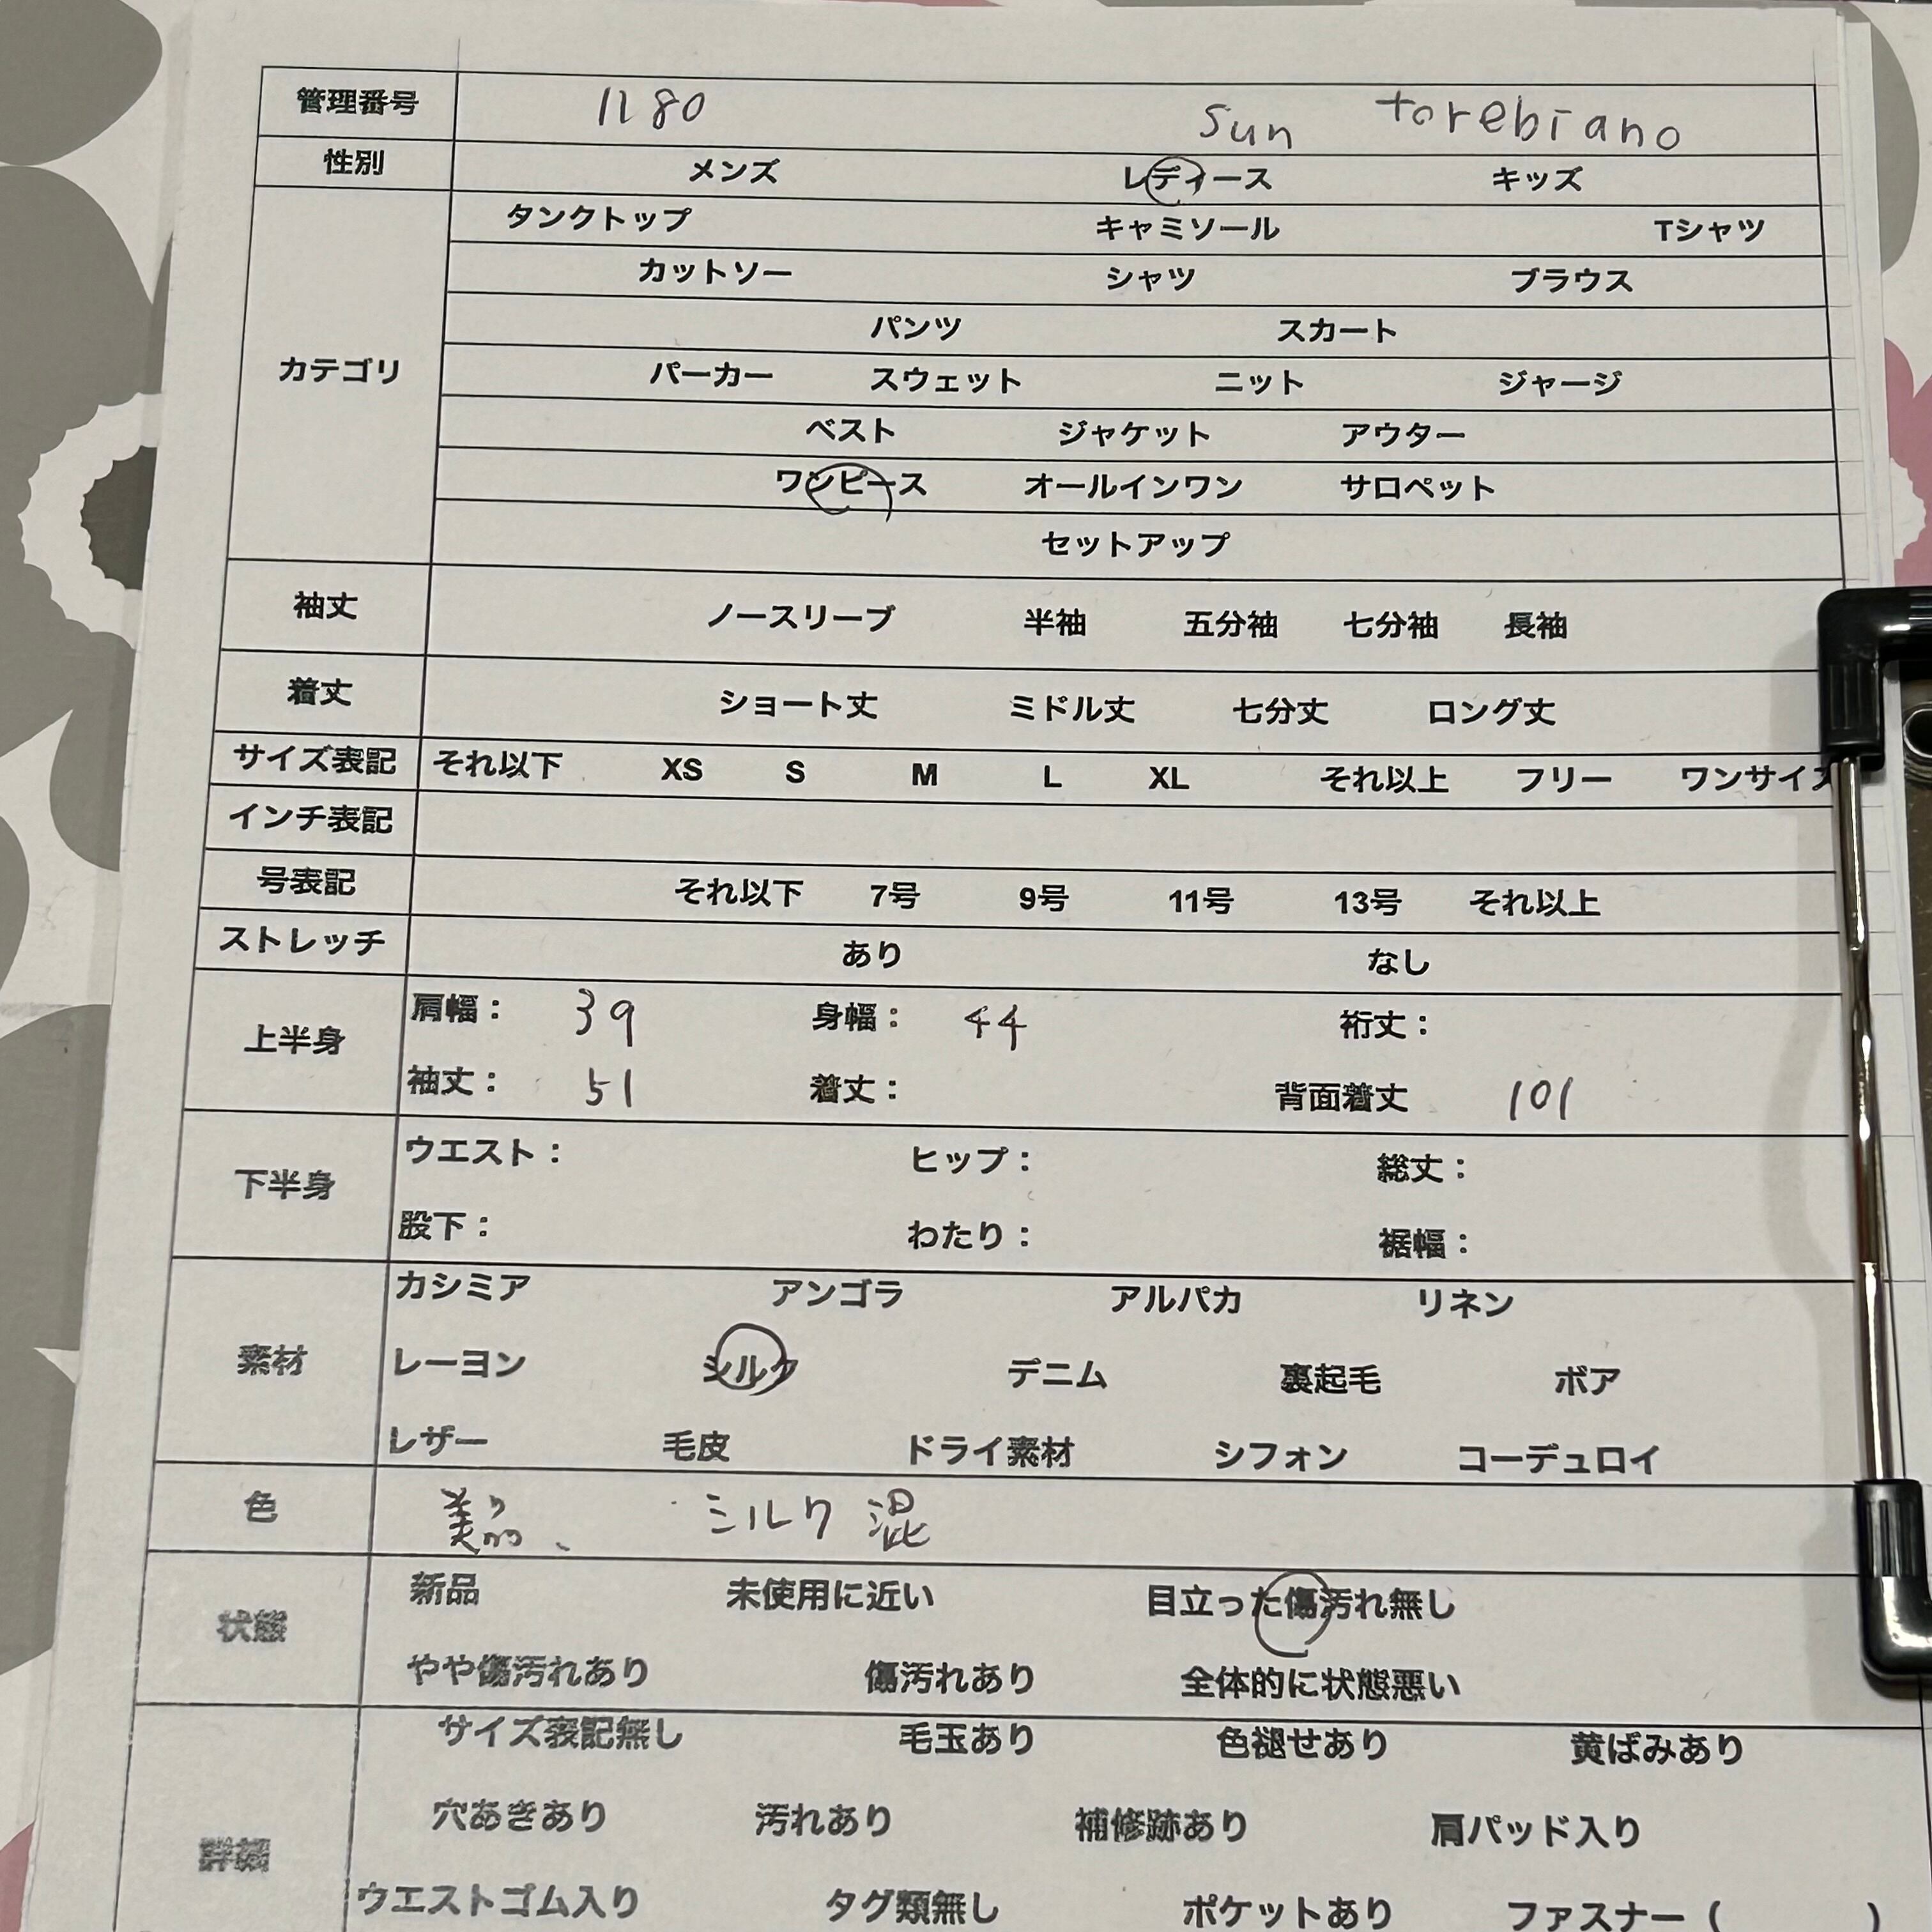 管理番号 1180 sun torebiano
性別 メンズ レディース キッズ
タンクトップ キャミソール Tシャツ
カットソー シャツ ブラウス
パンツ スカート
カテゴリ パーカー スウェット ニット ジャージ
ベスト ジャケット アウター
ワンピース オールインワン サロペット
セットアップ
袖丈 ノースリーブ 半袖 五分袖 七分袖 長袖
着丈 ショート丈 ミドル丈 七分丈 ロング丈
サイズ表記 それ以下 XS S M L XL それ以上 フリー ワンサイズ
インチ表記
号表記 それ以下 7号 9号 11号 13号 それ以上
ストレッチ あり なし
上半身 肩幅： 39 身幅： 44 裄丈：
袖丈： 51 着丈： 背面着丈 101
下半身 ウエスト： ヒップ： 総丈：
股下： わたり： 裾幅：
カシミア アンゴラ アルパカ リネン
素材 レーヨン シルク デニム 裏起毛 ボア
レザー 毛皮 ドライ素材 シフォン コーデュロイ
色 美品、 シルク混
状態 新品 未使用に近い 目立った傷汚れ無し
やや傷汚れあり 傷汚れあり 全体的に状態悪い
サイズ表記無し 毛玉あり 色褪せあり 黄ばみあり
詳細 穴あきあり 汚れあり 補修跡あり 肩パッド入り
ウエストゴム入り タグ類無し ポケットあり ファスナー（ ）